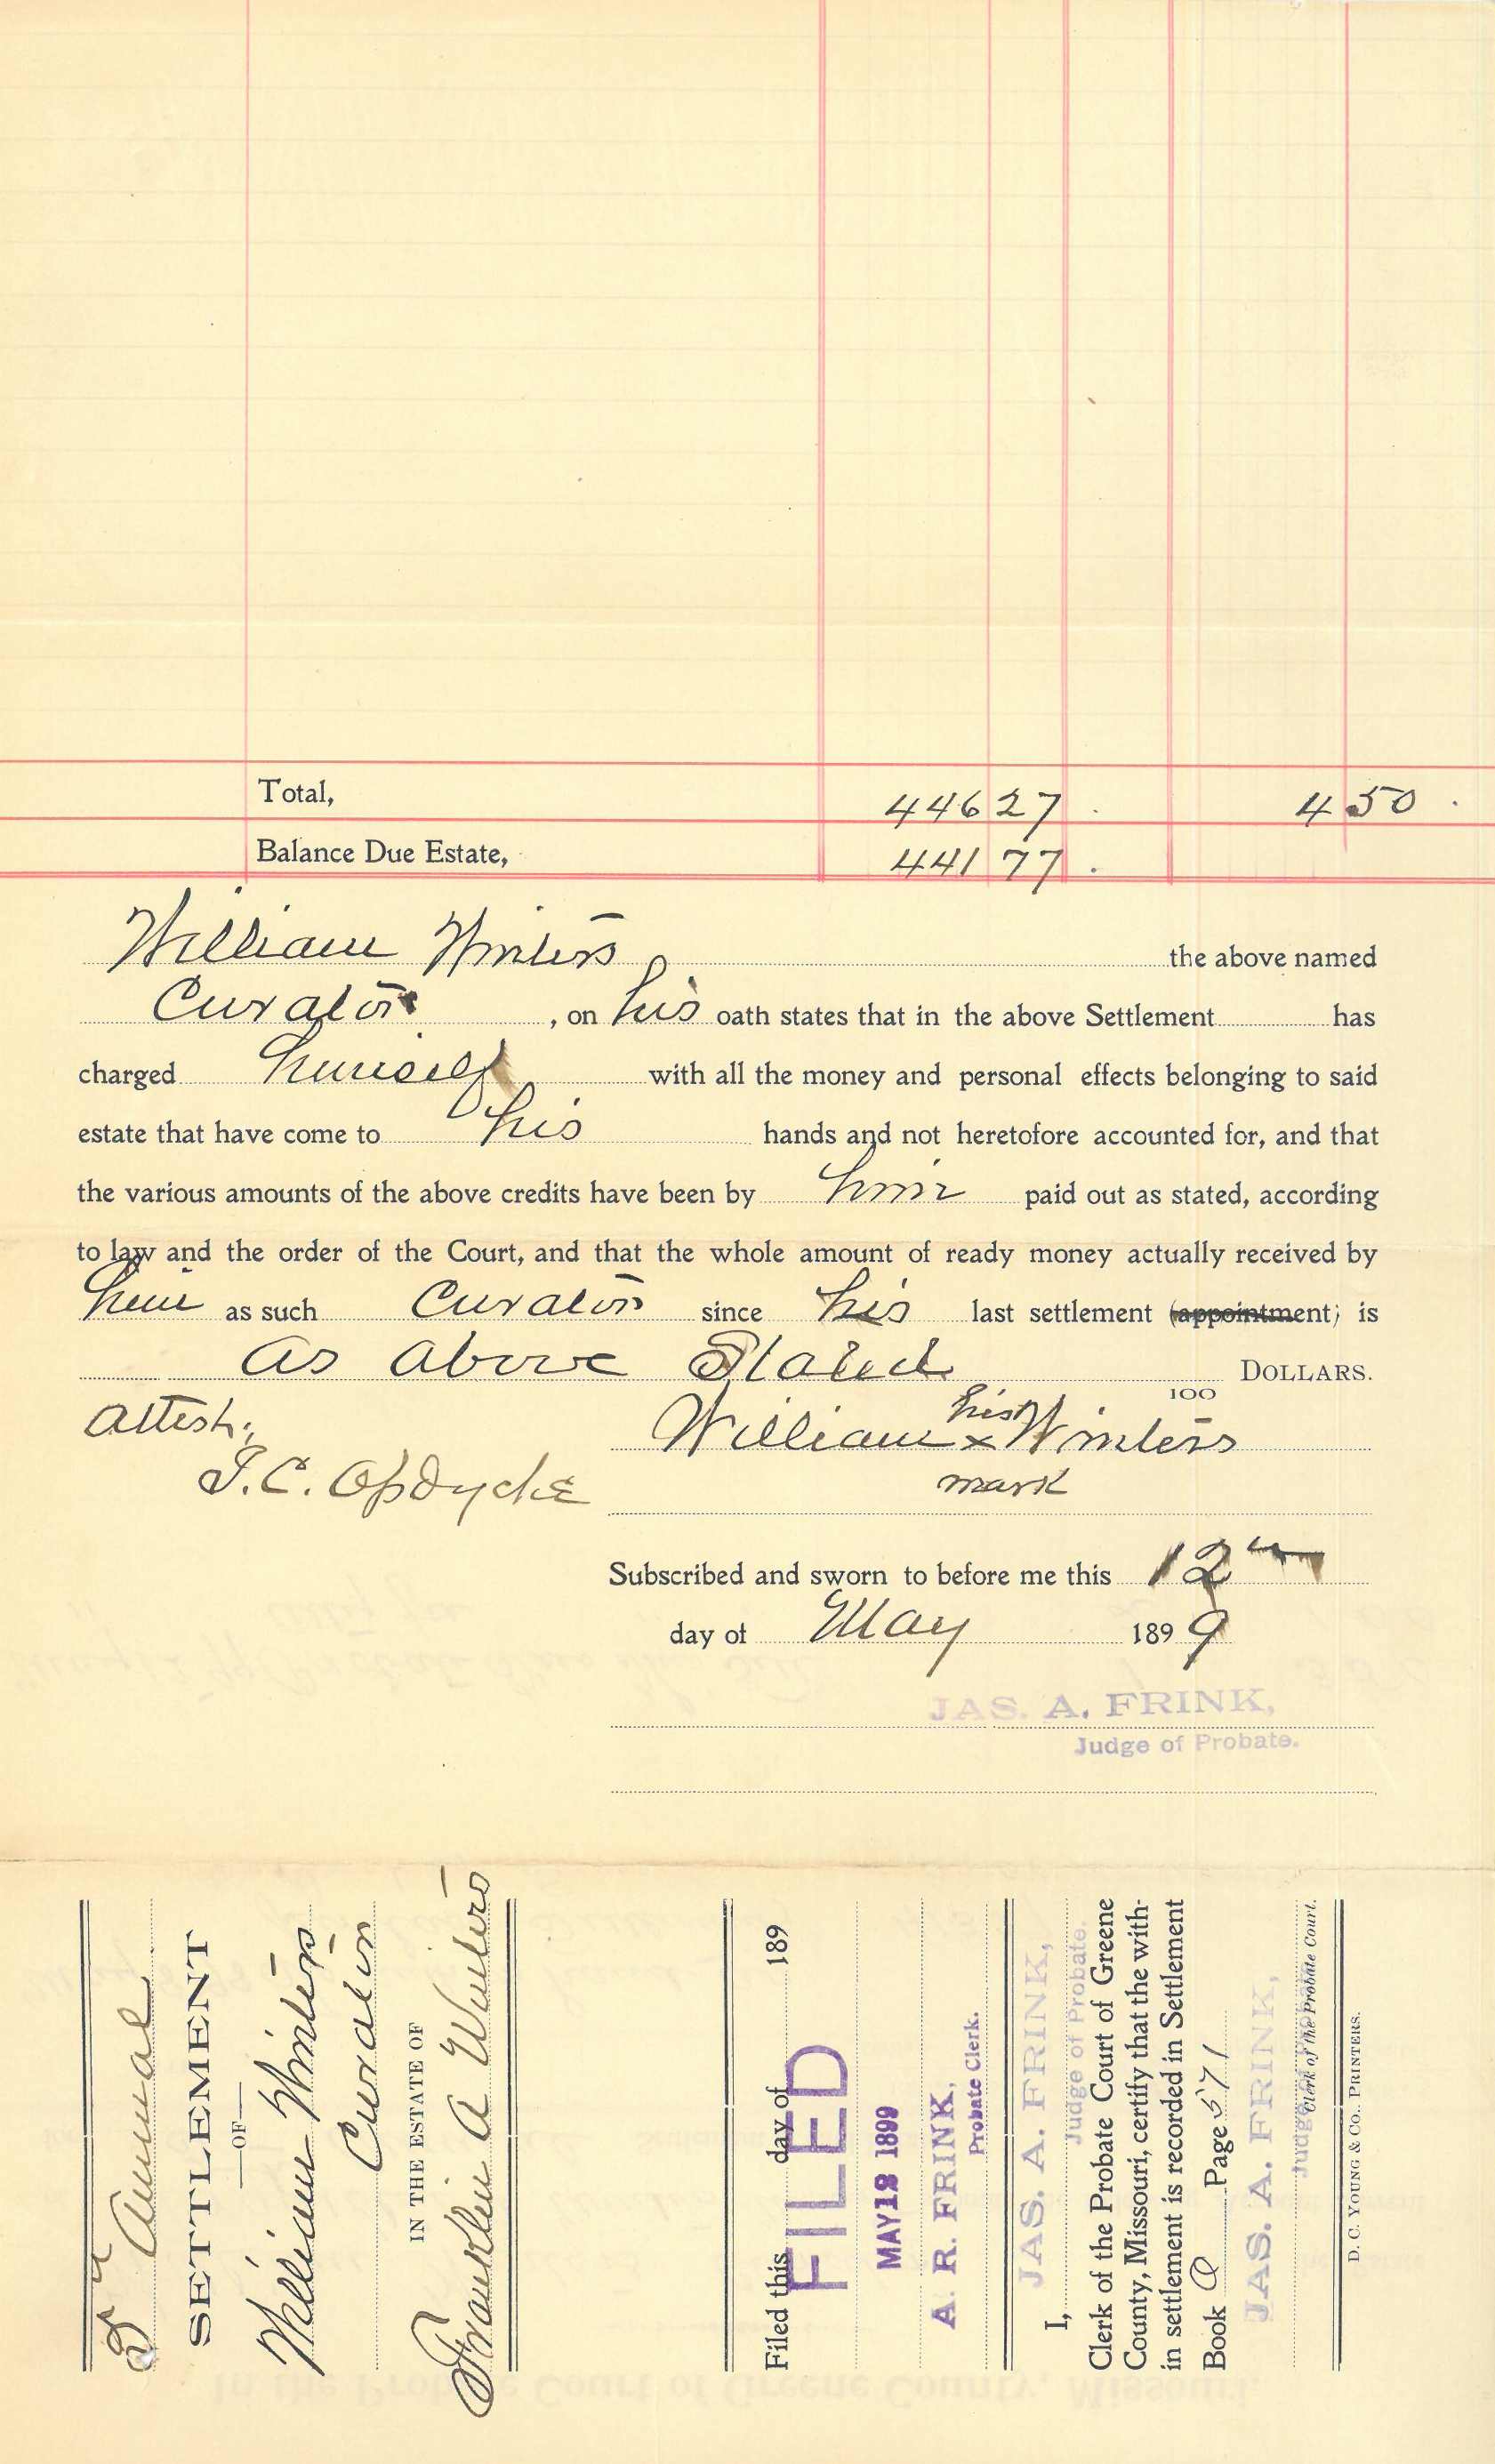 Total, 446 27 . 4 50 .
Balance Due Estate, 441 77 .
William Winters the above named
Curator , on his oath states that in the above Settlement has
charged himself with all the money and personal effects belonging to said
estate that have come to his hands and not heretofore accounted for, and that
the various amounts of the above credits have been by him paid out as stated, according
to law and the order of the Court, and that the whole amount of ready money actually received by
him as such Curator since his last settlement (appointment) is
as above Stated DOLLARS.
100
Attest; William his x Winters
mark
T.C. Opdycke
Subscribed and sworn to before me this 12th
day of May 1899
JAS. A. FRINK,
Judge of Probate.
Annual
SETTLEMENT
—OF—
William Winters
Curator
IN THE ESTATE OF
Franklin A Winters
Filed this day of 189
FILED
MAY 12 1899
A. R. FRINK,
Probate Clerk.
JAS. A. FRINK,
Judge of Probate.
I,
Clerk of the Probate Court of Greene
County, Missouri, certify that the with-
in settlement is recorded in Settlement
Book Q Page 571
JAS. A. FRINK,
Judge of Probate
Clerk of the Probate Court.
D. C. YOUNG & CO., PRINTERS.
In the Probate Court of Greene County, Missouri.